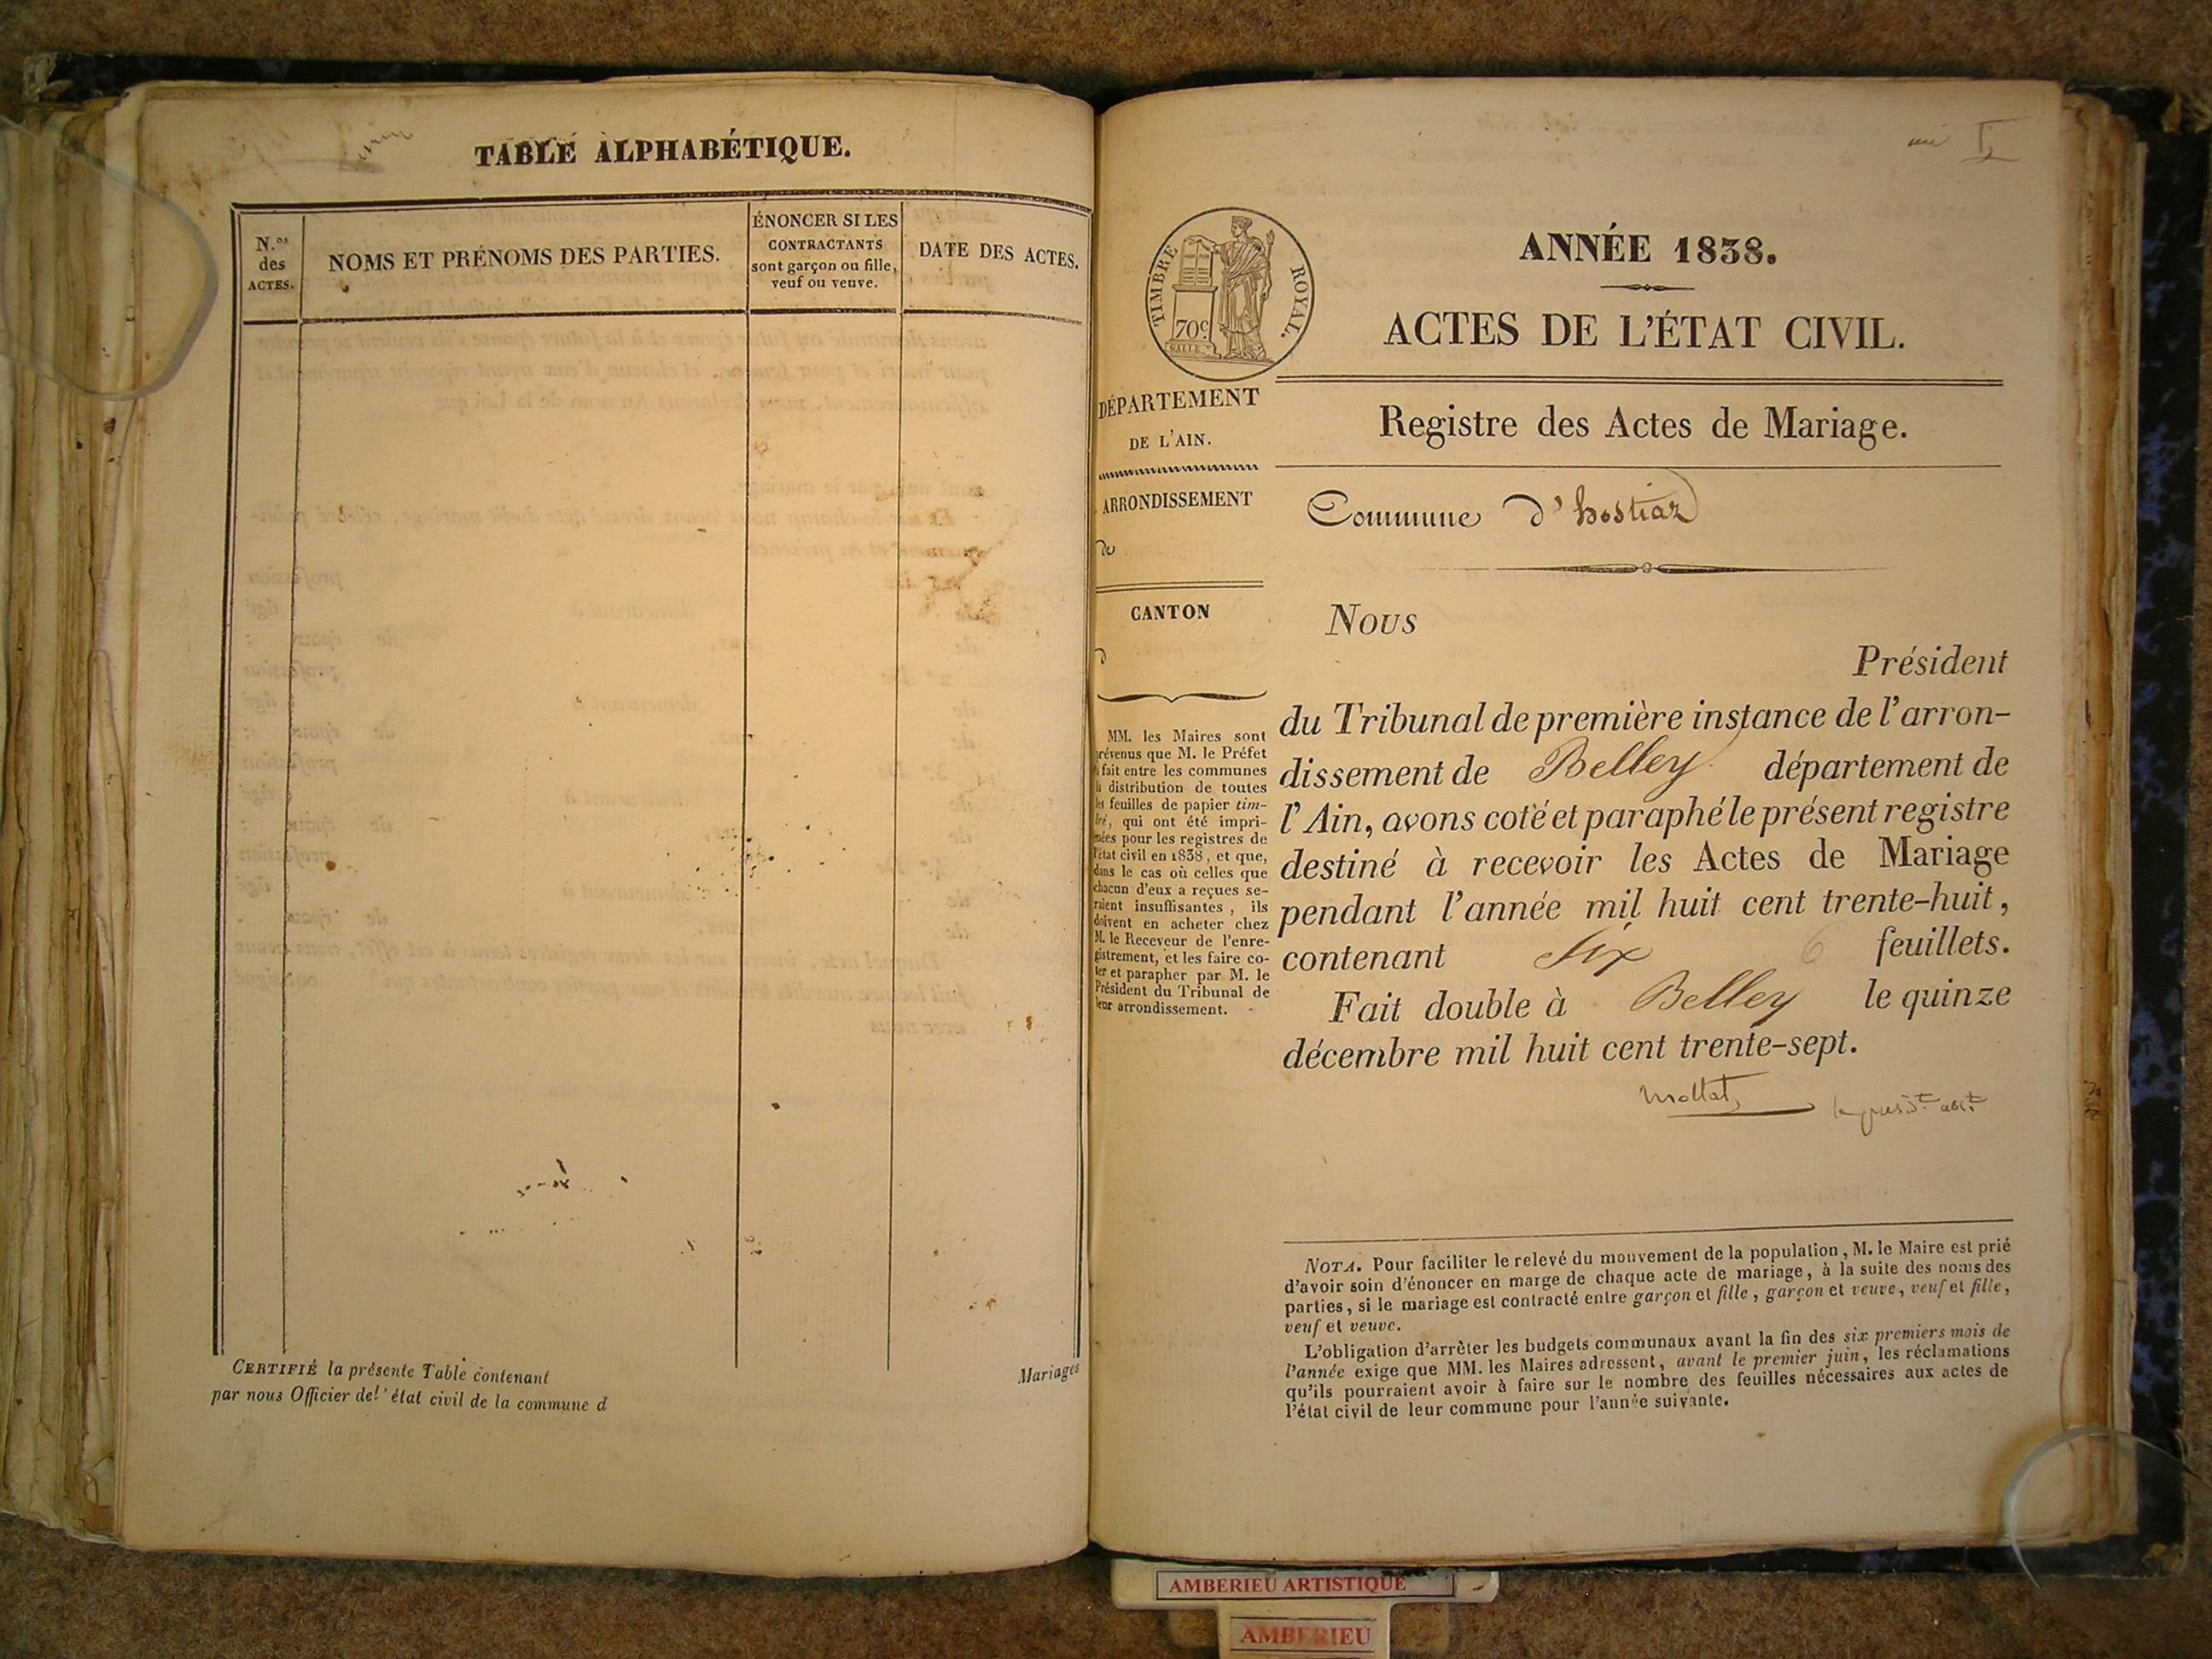 TABLE ALPHABÉTIQUE.
N.os des ACTES.
NOMS ET PRÉNOMS DES PARTIES.
ÉNONCER SI LES
CONTRACTANTS
sont garçon ou fille,
veuf ou veuve.
DATE DES ACTES.
CERTIFIÉ la présente Table contenant
par nous Officier de l'état civil de la commune d
Mariages
TIMBRE ROYAL.
70c
GALLE
DÉPARTEMENT
DE L'AIN.
ARRONDISSEMENT
de
CANTON
d
MM. les Maires sont
prévenus que M. le Préfet
a fait entre les communes
la distribution de toutes
les feuilles de papier tim-
bré, qui ont été impri-
mées pour les registres de
l'état civil en 1838, et que,
dans le cas où celles que
chacun d'eux a reçues se-
raient insuffisantes, ils
doivent en acheter chez
M. le Receveur de l'enre-
gistrement, et les faire co-
ter et parapher par M. le
Président du Tribunal de
leur arrondissement.
ANNÉE 1838.
ACTES DE L'ÉTAT CIVIL.
Registre des Actes de Mariage.
Commune d'hostiaz
Nous
Président
du Tribunal de première instance de l'arron-
dissement de Belley département de
l'Ain, avons coté et paraphé le présent registre
destiné à recevoir les Actes de Mariage
pendant l'année mil huit cent trente-huit,
contenant Six 6 feuillets.
Fait double à Belley le quinze
décembre mil huit cent trente-sept.
Mollat
NOTA. Pour faciliter le relevé du mouvement de la population, M. le Maire est prié
d'avoir soin d'énoncer en marge de chaque acte de mariage, à la suite des noms des
parties, si le mariage est contracté entre garçon et fille, garçon et veuve, veuf et fille,
veuf et veuve.
L'obligation d'arrêter les budgets communaux avant la fin des six premiers mois de
l'année exige que MM. les Maires adressent, avant le premier juin, les réclamations
qu'ils pourraient avoir à faire sur le nombre des feuilles nécessaires aux actes de
l'état civil de leur commune pour l'année suivante.
AMBERIEU ARTISTIQUE
AMBERIEU